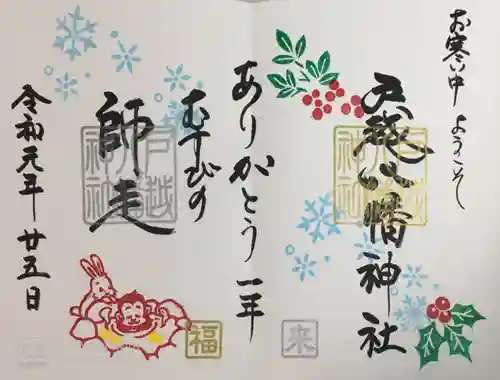 お寒い中 ようこそ
戸越八幡神社
ありがとう 一年
むすびの
師走
令和元年 廿五日
戸越
八幡
神社
福
来